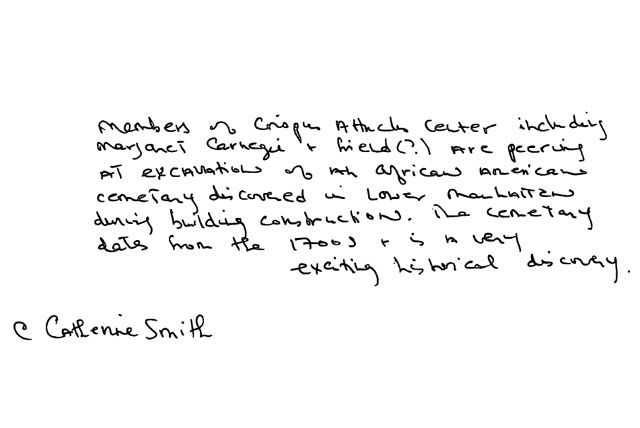 Members of Crispus Attucks Center including
Margaret Carnegie + friend (?) are peering
at excavation of an African American
cemetary discovered in Lower Manhattan
during building construction. The cemetary
dates from the 1700s + is a very
exciting historical discovery.
C Catherine Smith